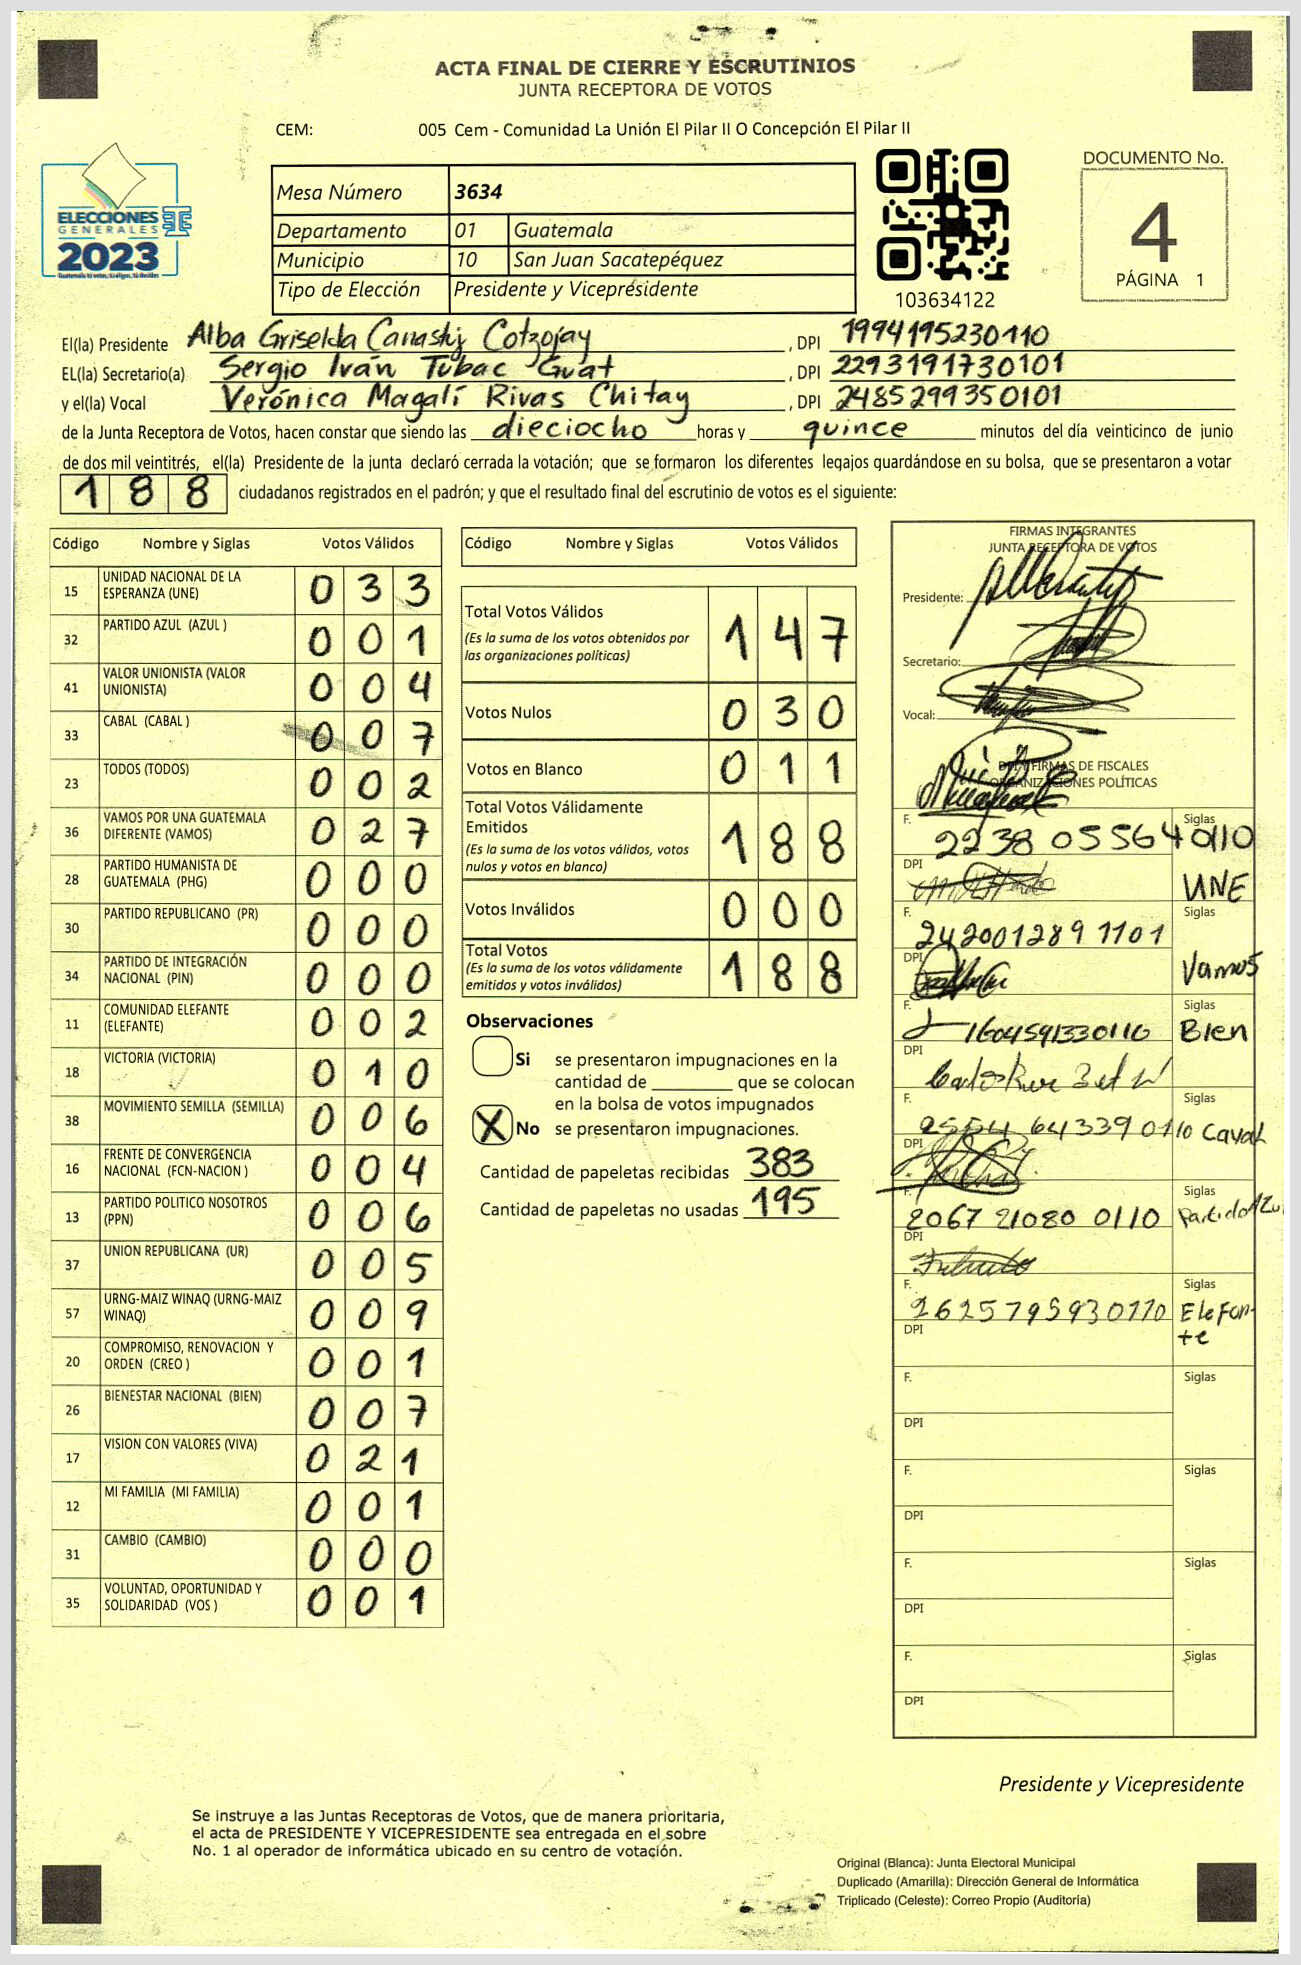 ACTA FINAL DE CIERRE Y ESCRUTINIOS
JUNTA RECEPTORA DE VOTOS
CEM: 005 Cem - Comunidad La Unión El Pilar II O Concepción El Pilar II
ELECCIONES
GENERALES
2023
Mesa Número 3634
Departamento 01 Guatemala
Municipio 10 San Juan Sacatepéquez
Tipo de Elección Presidente y Vicepresidente
103634122
DOCUMENTO No.
4
PÁGINA 1
El(la) Presidente Alba Griselda Canastuj Cotzojay, DPI 1994195230110
EL(la) Secretario(a) Sergio Iván Tubac Guat, DPI 2293191730101
y el(la) Vocal Verónica Magalí Rivas Chitay, DPI 2485299350101
de la Junta Receptora de Votos, hacen constar que siendo las dieciocho horas y quince minutos del día veinticinco de junio
de dos mil veintitrés, el(la) Presidente de la junta declaró cerrada la votación; que se formaron los diferentes legajos guardándose en su bolsa, que se presentaron a votar
188 ciudadanos registrados en el padrón; y que el resultado final del escrutinio de votos es el siguiente:
Código Nombre y Siglas Votos Válidos
15 UNIDAD NACIONAL DE LA ESPERANZA (UNE) 033
32 PARTIDO AZUL (AZUL ) 001
41 VALOR UNIONISTA (VALOR UNIONISTA) 004
33 CABAL (CABAL ) 007
23 TODOS (TODOS) 002
36 VAMOS POR UNA GUATEMALA DIFERENTE (VAMOS) 027
28 PARTIDO HUMANISTA DE GUATEMALA (PHG) 000
30 PARTIDO REPUBLICANO (PR) 000
34 PARTIDO DE INTEGRACIÓN NACIONAL (PIN) 000
11 COMUNIDAD ELEFANTE (ELEFANTE) 002
18 VICTORIA (VICTORIA) 010
38 MOVIMIENTO SEMILLA (SEMILLA) 006
16 FRENTE DE CONVERGENCIA NACIONAL (FCN-NACION ) 004
13 PARTIDO POLITICO NOSOTROS (PPN) 006
37 UNION REPUBLICANA (UR) 005
57 URNG-MAIZ WINAQ (URNG-MAIZ WINAQ) 009
20 COMPROMISO, RENOVACION Y ORDEN (CREO ) 001
26 BIENESTAR NACIONAL (BIEN) 007
17 VISION CON VALORES (VIVA) 021
12 MI FAMILIA (MI FAMILIA) 001
31 CAMBIO (CAMBIO) 000
35 VOLUNTAD, OPORTUNIDAD Y SOLIDARIDAD (VOS ) 001
Código Nombre y Siglas Votos Válidos
Total Votos Válidos 147
(Es la suma de los votos obtenidos por
las organizaciones políticas)
Votos Nulos 030
Votos en Blanco 011
Total Votos Válidamente
Emitidos 188
(Es la suma de los votos válidos, votos
nulos y votos en blanco)
Votos Inválidos 000
Total Votos 188
(Es la suma de los votos válidamente
emitidos y votos inválidos)
Observaciones
Si se presentaron impugnaciones en la
cantidad de ________ que se colocan
en la bolsa de votos impugnados
X No se presentaron impugnaciones.
Cantidad de papeletas recibidas 383
Cantidad de papeletas no usadas 195
FIRMAS INTEGRANTES
JUNTA RECEPTORA DE VOTOS
Presidente:
Secretario:
Vocal:
DPI/ FIRMAS DE FISCALES
ORGANIZACIONES POLÍTICAS
F. Siglas
DPI 2238 05564 0110 UNE
F. Siglas
DPI 2420012891101 Vamos
F. Siglas
DPI 1604591330110 Bien
F. Siglas
DPI 2554 64339 0110 Caval
F. Siglas
DPI 2067 21080 0110 Partido Azul
F. Siglas
DPI 2625795930110 Elefan-
te
F. Siglas
DPI
F. Siglas
DPI
F. Siglas
DPI
F. Siglas
DPI
Presidente y Vicepresidente
Se instruye a las Juntas Receptoras de Votos, que de manera prioritaria,
el acta de PRESIDENTE Y VICEPRESIDENTE sea entregada en el sobre
No. 1 al operador de informática ubicado en su centro de votación.
Original (Blanca): Junta Electoral Municipal
Duplicado (Amarilla): Dirección General de Informática
Triplicado (Celeste): Correo Propio (Auditoría)